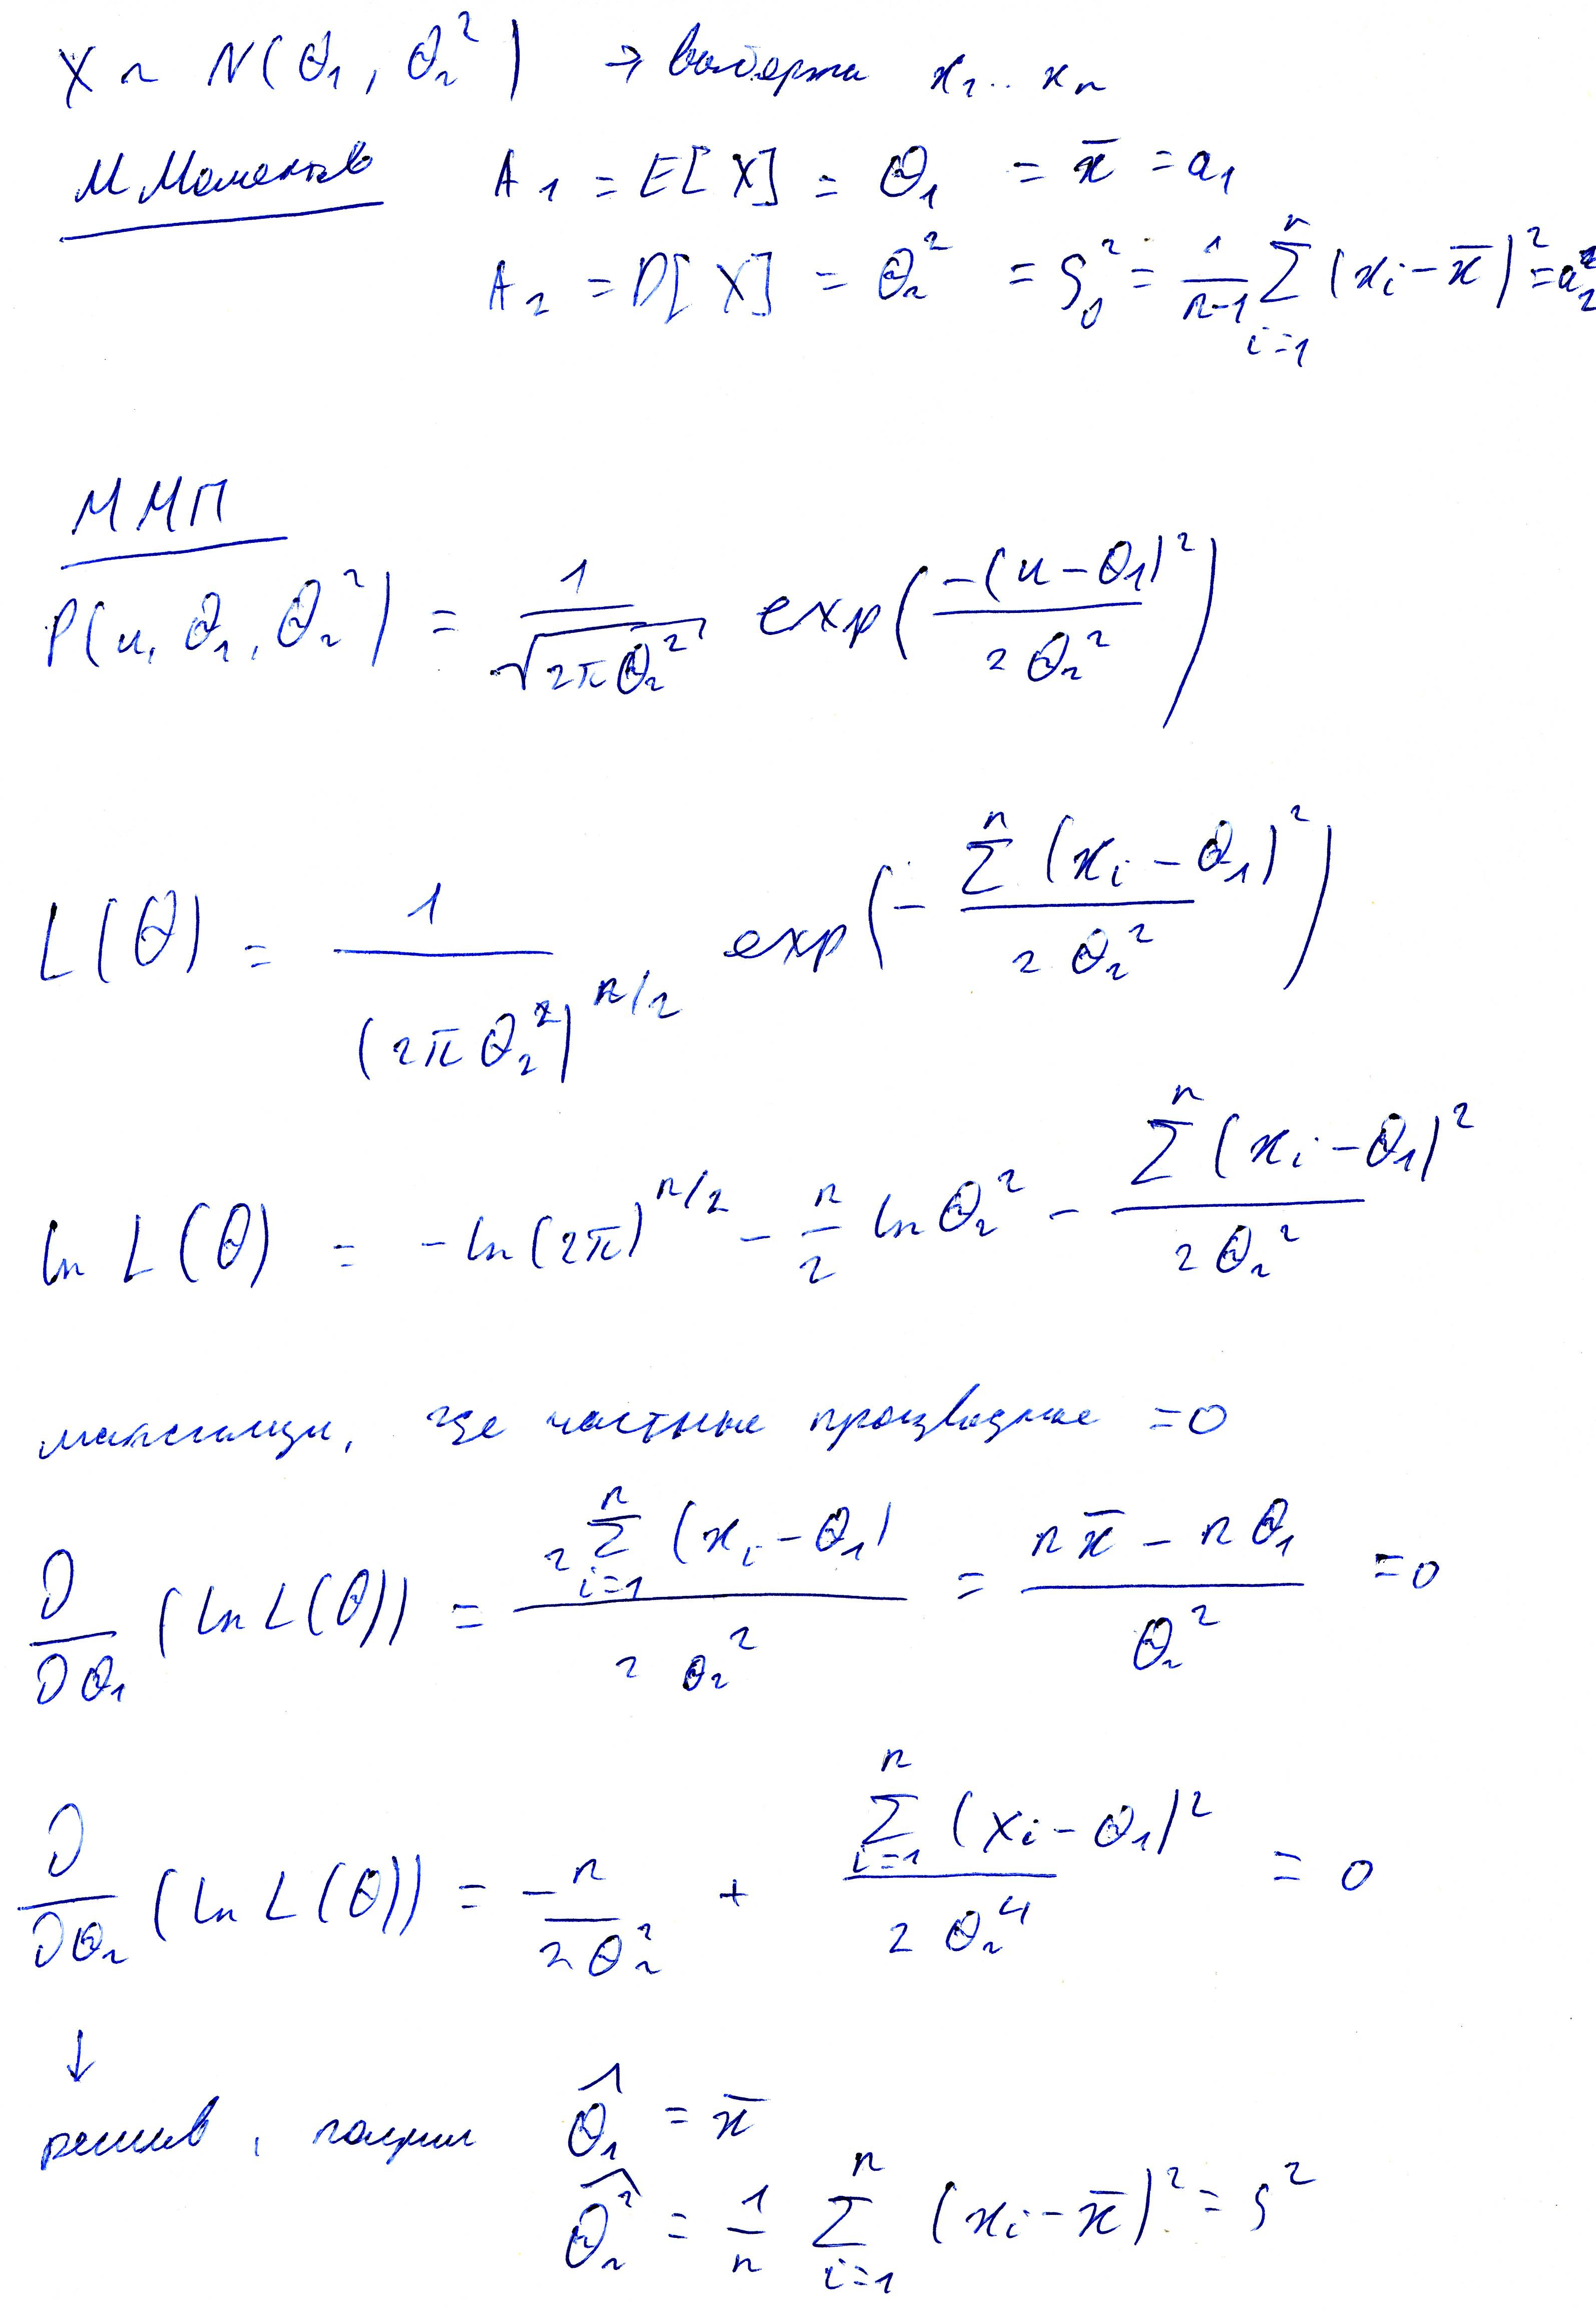 X ~ N(θ₁, θ₂²) → выборка x₁...xₙ
М Моментов A₁ = E[X] = θ₁ = x̄ = a₁
A₂ = D[X] = θ₂² = S₀² = 1/(n-1) Σ_{i=1}^{n} (xᵢ - x̄)² = a₂²
ММП
P(u, θ₁, θ₂²) = 1/√(2πθ₂²) exp(-(u - θ₁)²/(2θ₂²))
L(θ) = 1/(2πθ₂²)^{n/2} exp(- Σ^{n} (xᵢ - θ₁)²/(2θ₂²))
ln L(θ) = - ln(2π)^{n/2} - n/2 ln θ₂² - Σ^{n} (xᵢ - θ₁)²/(2θ₂²)
максимум, где частные производные = 0
∂/∂θ₁ (ln L(θ)) = 2 Σ_{i=1}^{n} (xᵢ - θ₁)/(2θ₂²) = (n x̄ - n θ₁)/θ₂² = 0
∂/∂θ₂ (ln L(θ)) = - n/(2θ₂²) + Σ_{i=1}^{n} (xᵢ - θ₁)²/(2θ₂⁴) = 0
↓
решив, получим θ̂₁ = x̄
θ̂₂² = 1/n Σ_{i=1}^{n} (xᵢ - x̄)² = S²